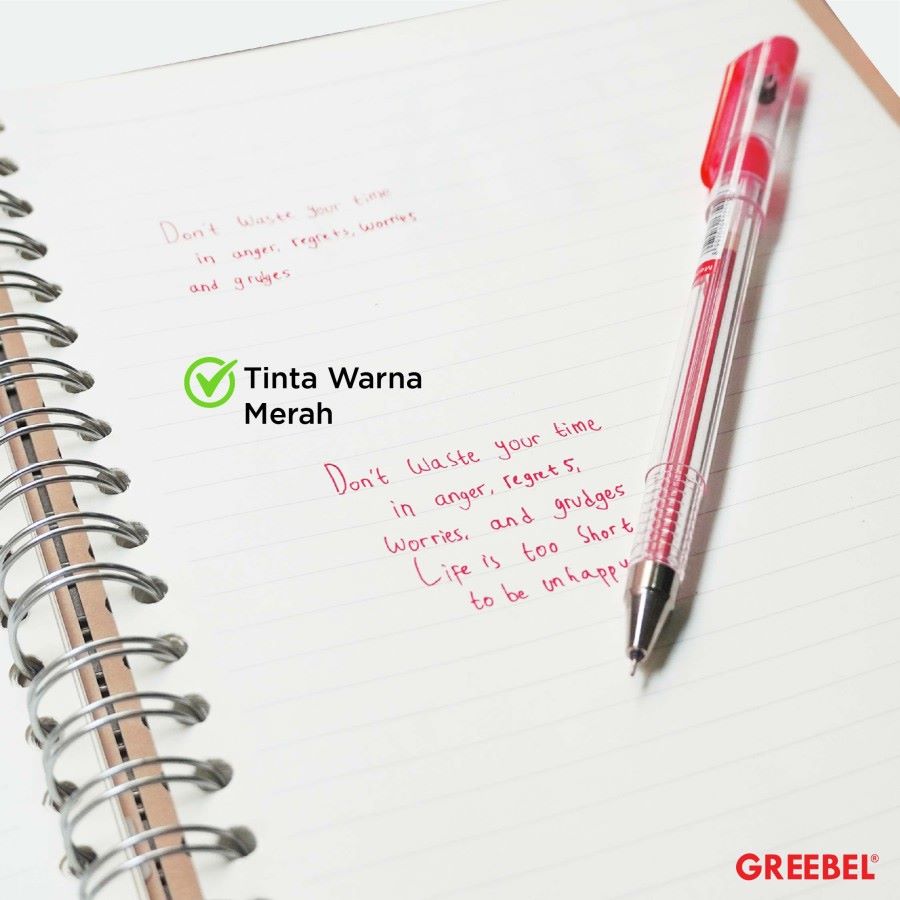 Don't waste your time
in anger, regrets, worries
and grudges
Tinta Warna
Merah
Don't waste your time
in anger, regrets,
worries, and grudges
Life is too short
to be unhappy
GREEBEL®